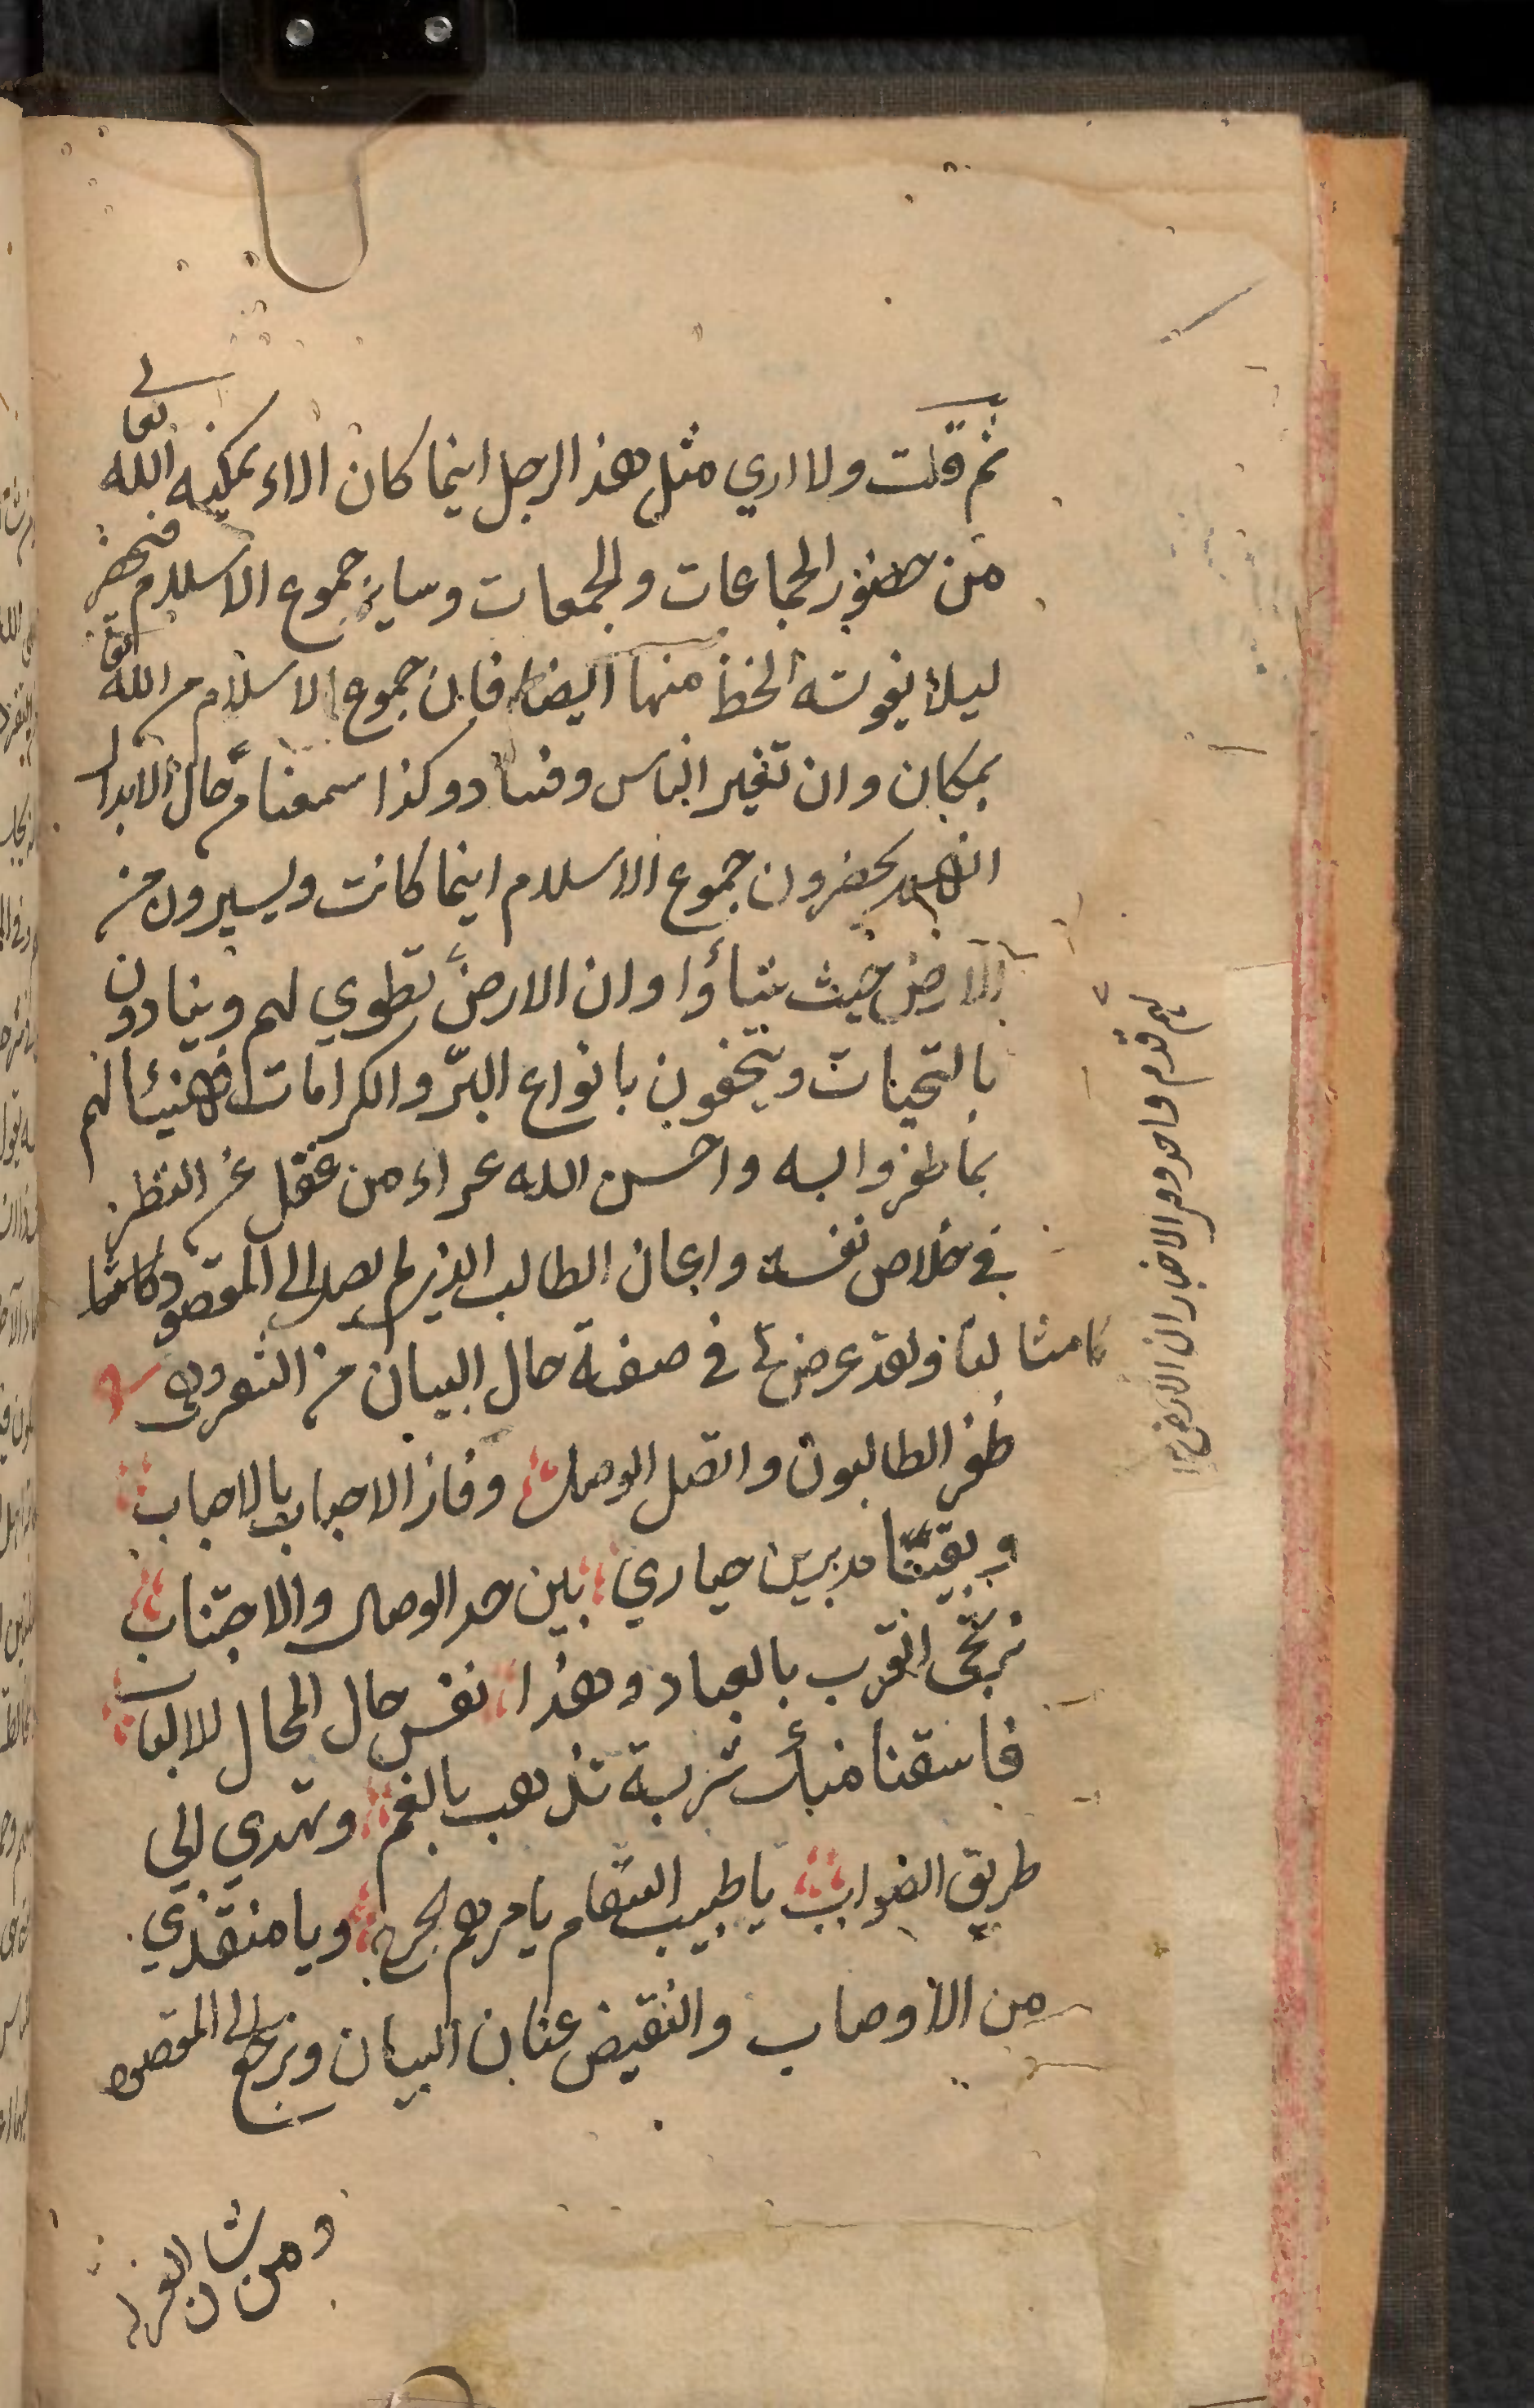 ثم قلت ولا اري مثل هذا الرجل اينما كان الاء يمكنه الله تعالى
من حضور الجماعات والجمعات وساير جموع الاسلام فيحضر
ليلا يفوته الحظ منها ايضا فان جموع الاسلام من الله تعالى
بمكان وان تغير الناس وفسادو كذا سمعنا من حال الابدال
انهم يحضرون جموع الاسلام اينما كانت ويسيرون من
الارض حيث شاؤا وان الارض تطوي لهم وينادون
بالتحيات ويتحفون بانواع البرّ والكرامات فهنيئا لهم
بما ظفروا به واحسن الله عزاء من غفل عن النظر
في خلاص نفسه واعان الطالب الذي لم يصل الى المقصود كامثا
كامثالنا ولقد عرض لي في صفة حال البيان من الشعر وهي
ظفر الطالبون واتصل الوصل وفاز الاحباب بالاحباب
وبقيّنا مدبرين حياري بين حد الوصال والاجتناب
نرتجى القرب بالعباد وهذا نفس حال المحال للالباب
فاسقنا منك شربة تذهب بالغم وتهدي الي
طريق الصواب يا طبيب السقام يا مرهم الجرح ويا منقذي
من الاوصاب والنقبض عنان البيان ونرجع الى المقصود
ومن شان العز
لهم قدم واحد ومن الاخبار ان الارض